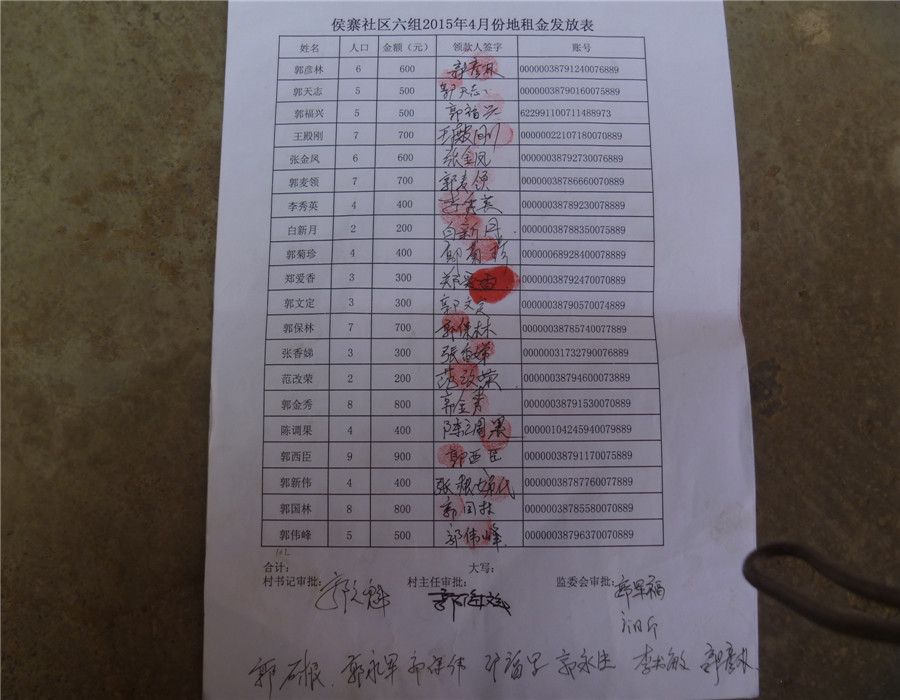 侯寨社区六组2015年4月份地租金发放表
姓名 人口 金额（元） 领款人签字 账号
郭彦林 6 600 郭彦林 00000038791240076889
郭天志 5 500 郭天志 00000038790160075889
郭福兴 5 500 郭福兴 622991100711488973
王殿刚 7 700 王殿刚 00000022107180070889
张金凤 6 600 张金凤 00000038792730076889
郭麦领 7 700 郭麦领 00000038786660070889
李秀英 4 400 李秀英 00000038789230078889
白新月 2 200 白新月 00000038788350075889
郭菊珍 4 400 郭菊珍 00000068928400078889
郑爱香 3 300 郑爱香 00000038792470070889
郭文定 3 300 郭文定 00000038790570074889
郭保林 7 700 郭保林 00000038785740077889
张香娣 3 300 张香娣 00000031732790076889
范改荣 2 200 范改荣 00000038794600073889
郭金秀 8 800 郭金秀 00000038791530070889
陈调果 4 400 陈调果 00000104245940079889
郭西臣 9 900 郭西臣 00000038791170075889
郭新伟 4 400 00000038787760077889
郭国林 8 800 郭国林 00000038785580070889
郭伟峰 5 500 郭伟峰 00000038796370070889
102
合计： 大写：
村书记审批： 村主任审批： 监委会审批：郭军福
郭永军 郭保伟 郭永生 李书敏 郭彦林